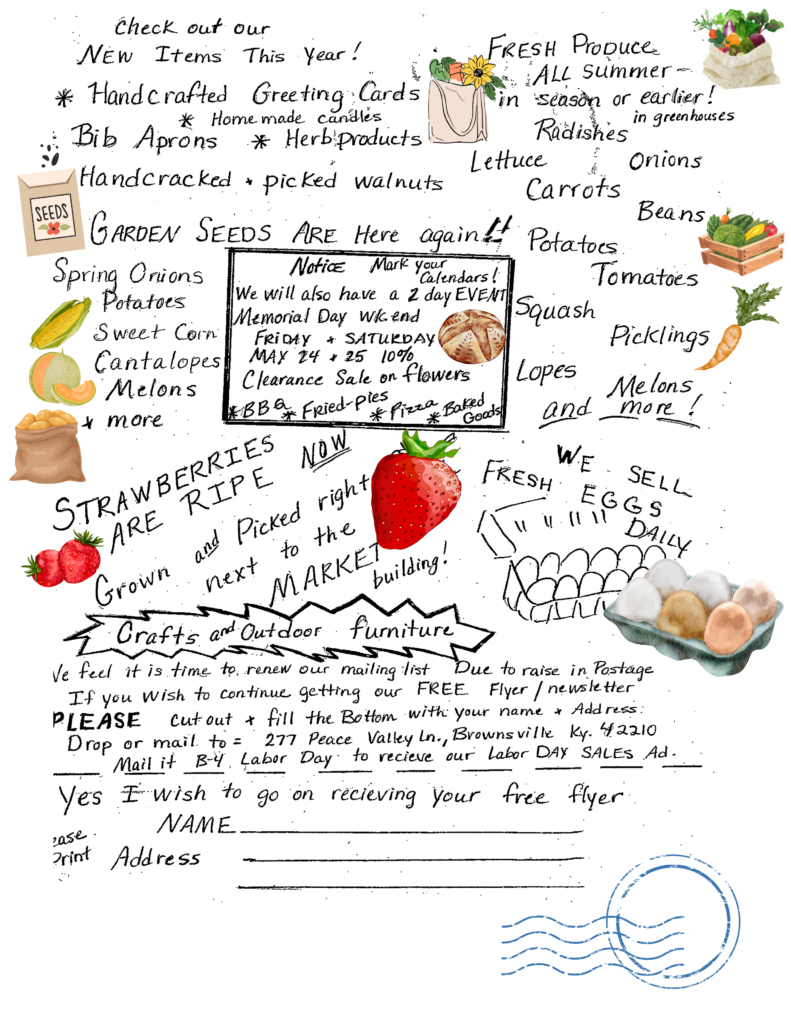 Check out our
NEW Items This Year!
* Handcrafted Greeting Cards
* Home made candles
Bib Aprons * Herb Products
Handcracked + picked walnuts
SEEDS
GARDEN SEEDS ARE Here again!!
FRESH Produce
ALL Summer-
in season or earlier!
in greenhouses
Radishes
Lettuce Onions
Carrots
Beans
Potatoes
Tomatoes
Squash
Picklings
Lopes
Melons
and more!
Spring Onions
Potatoes
Sweet Corn
Cantalopes
Melons
+ more
Notice Mark your
Calendars!
We will also have a 2 day EVENT
Memorial Day wk.end
FRIDAY + SATURDAY
MAY 24 + 25 10%
Clearance Sale on flowers
*BBQ * Fried-pies * Pizza * Baked
Goods
STRAWBERRIES
ARE RIPE NOW
Grown and Picked right
next to the
MARKET building!
WE SELL
FRESH EGGS
DAILY
Crafts and Outdoor furniture
We feel it is time to renew our mailing list Due to raise in Postage
If you wish to continue getting our FREE Flyer/newsletter
PLEASE cut out + fill the Bottom with your name + Address.
Drop or mail to = 277 Peace Valley Ln., Brownsville Ky. 42210
Mail it B-4 Labor Day to recieve our Labor DAY SALES Ad.
Yes I wish to go on recieving your free flyer
NAME
ease
Print Address